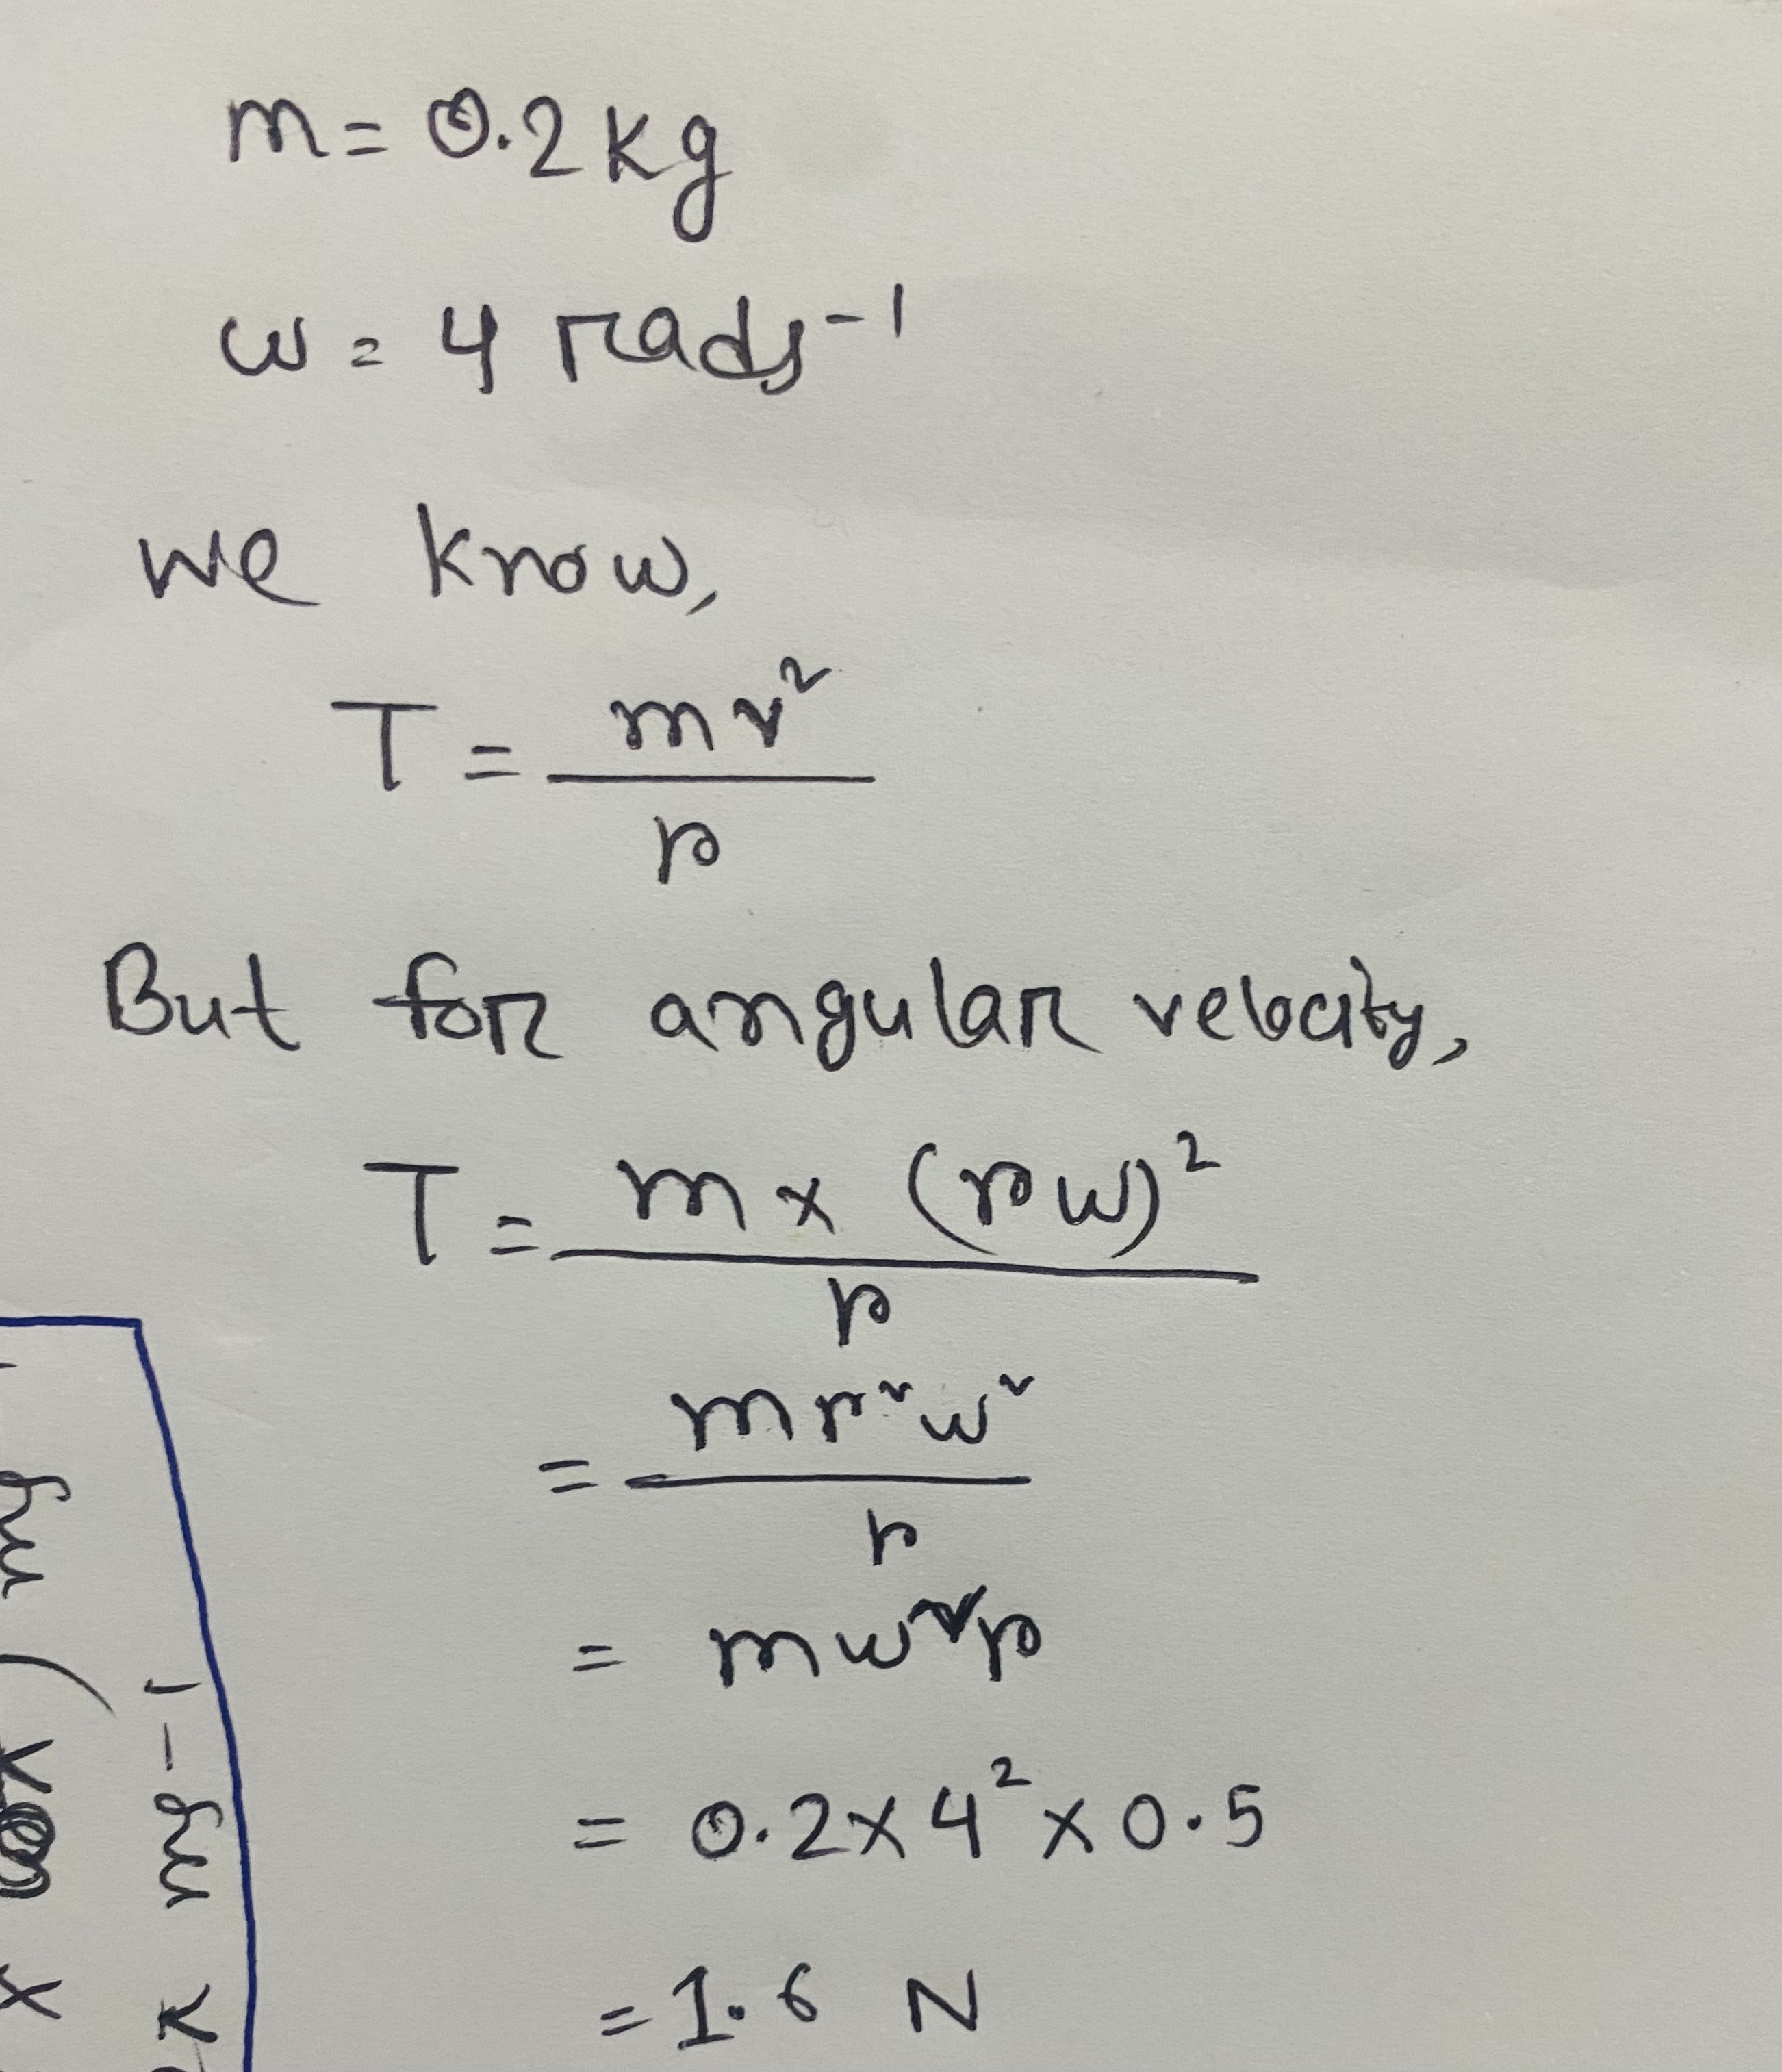 m = 0.2 kg
ω = 4 rads⁻¹
we know,
T = mv²/r
But for angular velocity,
T = m × (rω)²/r
= mr²ω²/r
= mω²r
= 0.2 × 4² × 0.5
= 1.6 N